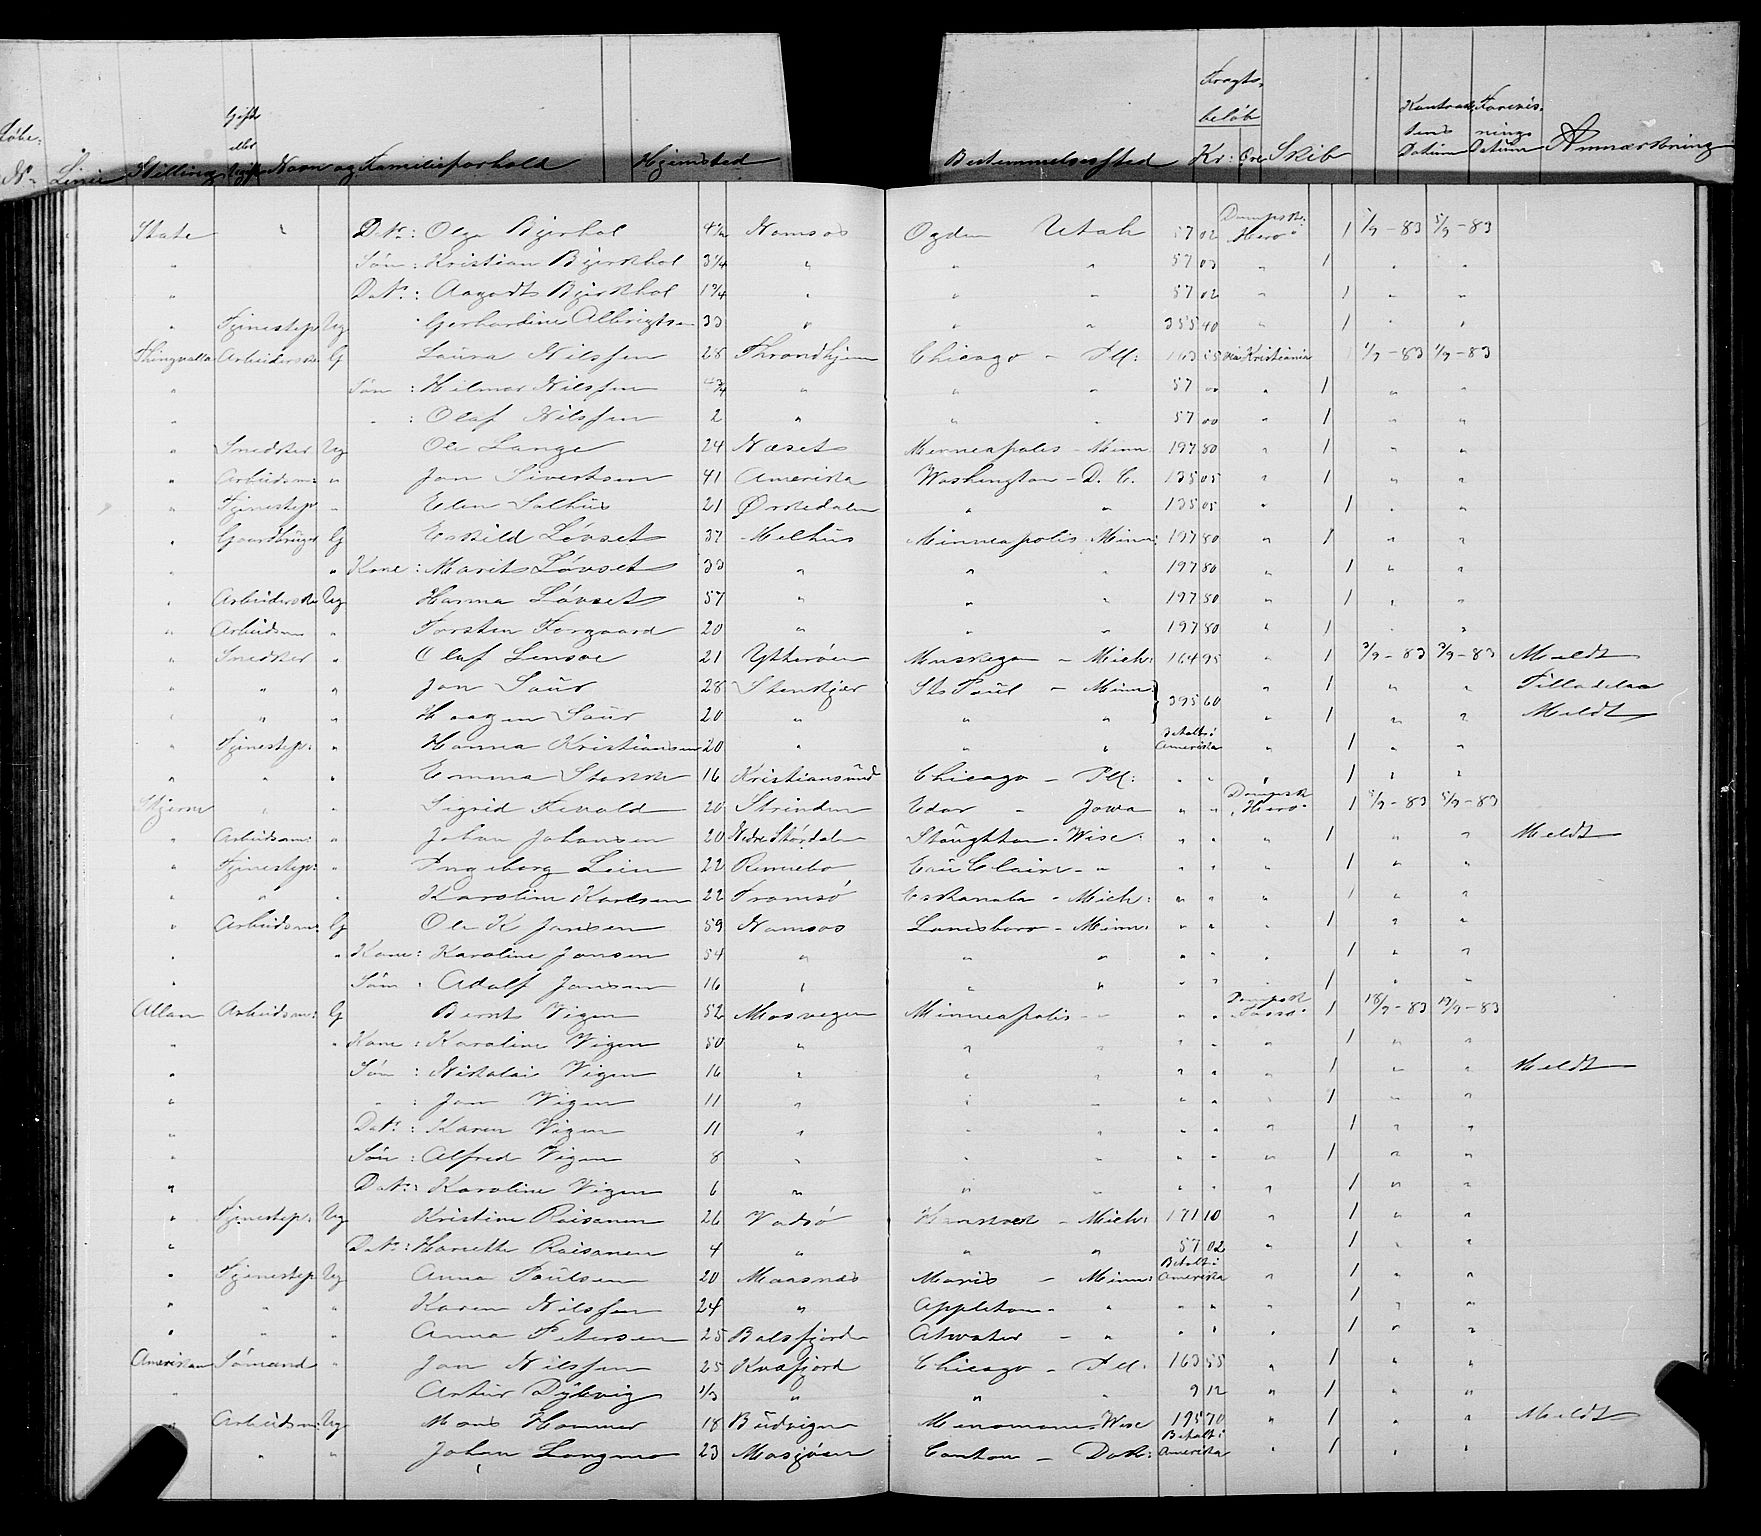 Løbe- N° Linie Stilling Gift eller Ugift Navn og Familieforhold Hjemsted Bestemmelsessted Fragtbeløb Kr: Øre Skib Kontraktens Datum Forevisnings Datum Anmærkning
State " Datr: Olga Bjerkhol Namsos Ogden Utah 57 02 Dampsk: Hero 1 5/9-83 5/9-83
" Søn: Kristian Bjerkhol 3 1/4 " " " 57 03 " 1 " "
" Datr: Aagodt Bjerkhol 1 3/4 " " " 57 02 " 1 " "
" Tjenestep Ug Gerhardine Albrigtsen 33 " " " 355 40 " 1 " "
Thingvalla Arbeiderske G Laura Nilssen 28 Throndhjem Chicago - Ill: 163 55 via Kristiania 1 1/9-83 1/9-83
" Søn: Hilmar Nilssen " " " 57 00 " 1 " "
" " : Olaf Nilssen 2 " " " 57 00 " 1 " "
" Snedker Ug Ole Lange 24 Næset Minneapolis - Minn: 197 80 " 1 " "
" Arbeidsm: " Jon Sivertsen 41 Amerika Washington - D. C. 135 05 " 1 " "
" Tjenestep " Elen Solhus 21 Ørkedalen " " 135 05 " 1 " "
" Gaardbruger G Eskild Løvset 37 Melhus Minneapolis Minn: 197 80 " 1 " "
" " Kone: Marit Løvset 33 " " " 197 80 " 1 " "
" Arbeiderske Ug Hanna Løvset 57 " " " 197 80 " 1 " "
" Arbeidsm " Torsten Forgaard 20 " " " 197 80 " 1 " "
" Snedker " Olaf Lensoe 21 Ytterøen Muskegon - Mich: 164 95 " 1 3/9-83 3/9-83 Meldt
" " " Jon Saur 28 Stenkjer St Paul - Minn: } 395 60 " 1 " " Tilladelse
" " " Haagen Saur 20 " " " " 1 " " Meldt
" Tjenestep: " Hanna Kristiansen 20 " " " Betalt i Amerika " 1 " "
" " " Emma Stokke 16 Kristiansund Chicago - Ill: " " " 1 " "
Stjerne " " Sigrid Fevold 20 Strinden - Jowa " " Dampsk "Hero" 1 5/9-83 5/9-83
" Arbeidsm: " Johan Johansen 20 Nedre Størdalen Stoughton - Wisc: " " " 1 " " Meldt
" Tjenestep: " Ingeborg Lien 22 Rennebo Eau Claire - " " " " 1 " "
" " " Karoline Karlsen 22 Tromsø Eskanaba - Mich: " " " 1 " "
" Arbeidsm: G Ole K Jansen 59 Namsos Lanesboro - Minn: " " " 1 " "
" " Kone: Karoline Jansen 54 " " " " " " 1 " "
" Søn: Adolf Jansen 16 " " " " " " 1 " "
Allan Arbeidsm: G Bernt Vigen 52 Mosvigen Minneapolis - " " " Dampsk "Tasso" 1 18/9-83 19/9-83
" " Kone: Karoline Vigen 50 " " " " " " 1 " "
" Søn: Nikolai Vigen 16 " " " " " " 1 " " Meldt
" " : Jon Vigen 11 " " " " " " 1 " "
" Datr: Karen Vigen 11 " " " " " " 1 " "
" Søn: Alfred Vigen 8 " " " " " " 1 " "
" Datr: Karoline Vigen 6 " " " " " " 1 " "
" Tjenestep: Ug Kristine Raisanen 26 Vadsø Hankock - Mich: 171 10 " 1 " "
" Datr: Hariette Raisanen 4 " " " 57 02 " 1 " "
" Tjenestep Ug Anna Poulsen 20 Maasnæs Moris - Minn: Betalt i Amerika " 1 " "
" " " Karen Nilssen 24 " Appleton - " " " " 1 " "
" " " Anna Petersen 25 Balsfjorden Atwater - " " " " 1 " "
Amerikan Sømand " Jon Nilssen 25 Kvæfjord Chicago - Ill: 163 55 " 1 " "
" Artur Dybvig " " " 9 12 " 1 " "
" Arbeidsm: Ug Mons Hammer 18 Budvigen Menomonee Wisc 195 70 " 1 " " Meldt
" " Johan Langmo 23 Mosjøen Canton - Dak: Betalt i Amerika " 1 " "